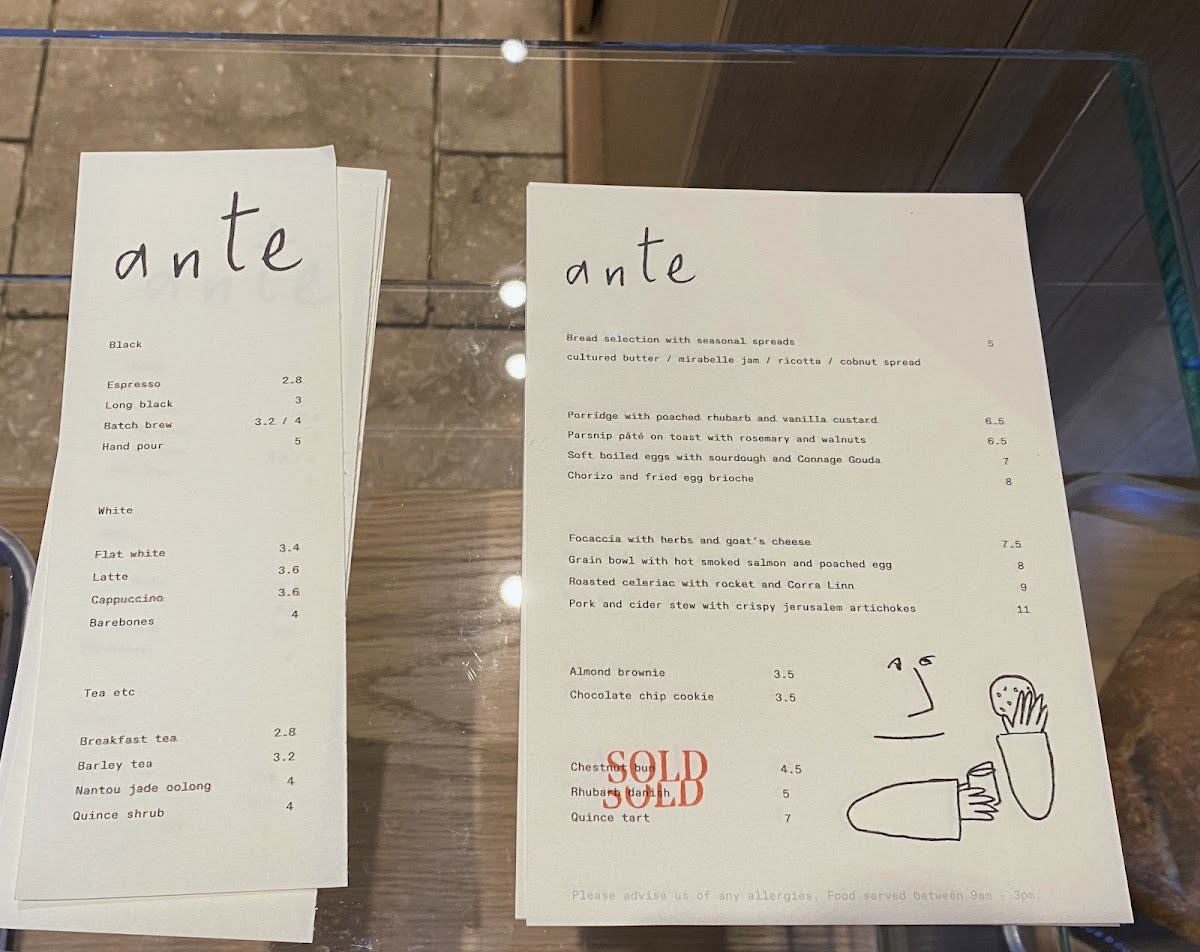 ante
Black
Espresso 2.8
Long black 3
Batch brew 3.2 / 4
Hand pour 5
White
Flat white 3.4
Latte 3.6
Cappuccino 3.6
Barebones 4
Tea etc
Breakfast tea 2.8
Barley tea 3.2
Nantou jade oolong 4
Quince shrub 4
ante
Bread selection with seasonal spreads 5
cultured butter / mirabelle jam / ricotta / cobnut spread
Porridge with poached rhubarb and vanilla custard 6.5
Parsnip pâté on toast with rosemary and walnuts 6.5
Soft boiled eggs with sourdough and Connage Gouda 7
Chorizo and fried egg brioche 8
Focaccia with herbs and goat's cheese 7.5
Grain bowl with hot smoked salmon and poached egg 8
Roasted celeriac with rocket and Corra Linn 9
Pork and cider stew with crispy jerusalem artichokes 11
Almond brownie 3.5
Chocolate chip cookie 3.5
Chestnut bun 4.5
SOLD
Rhubarb danish 5
SOLD
Quince tart 7
Please advise us of any allergies. Food served between 9am - 3pm.